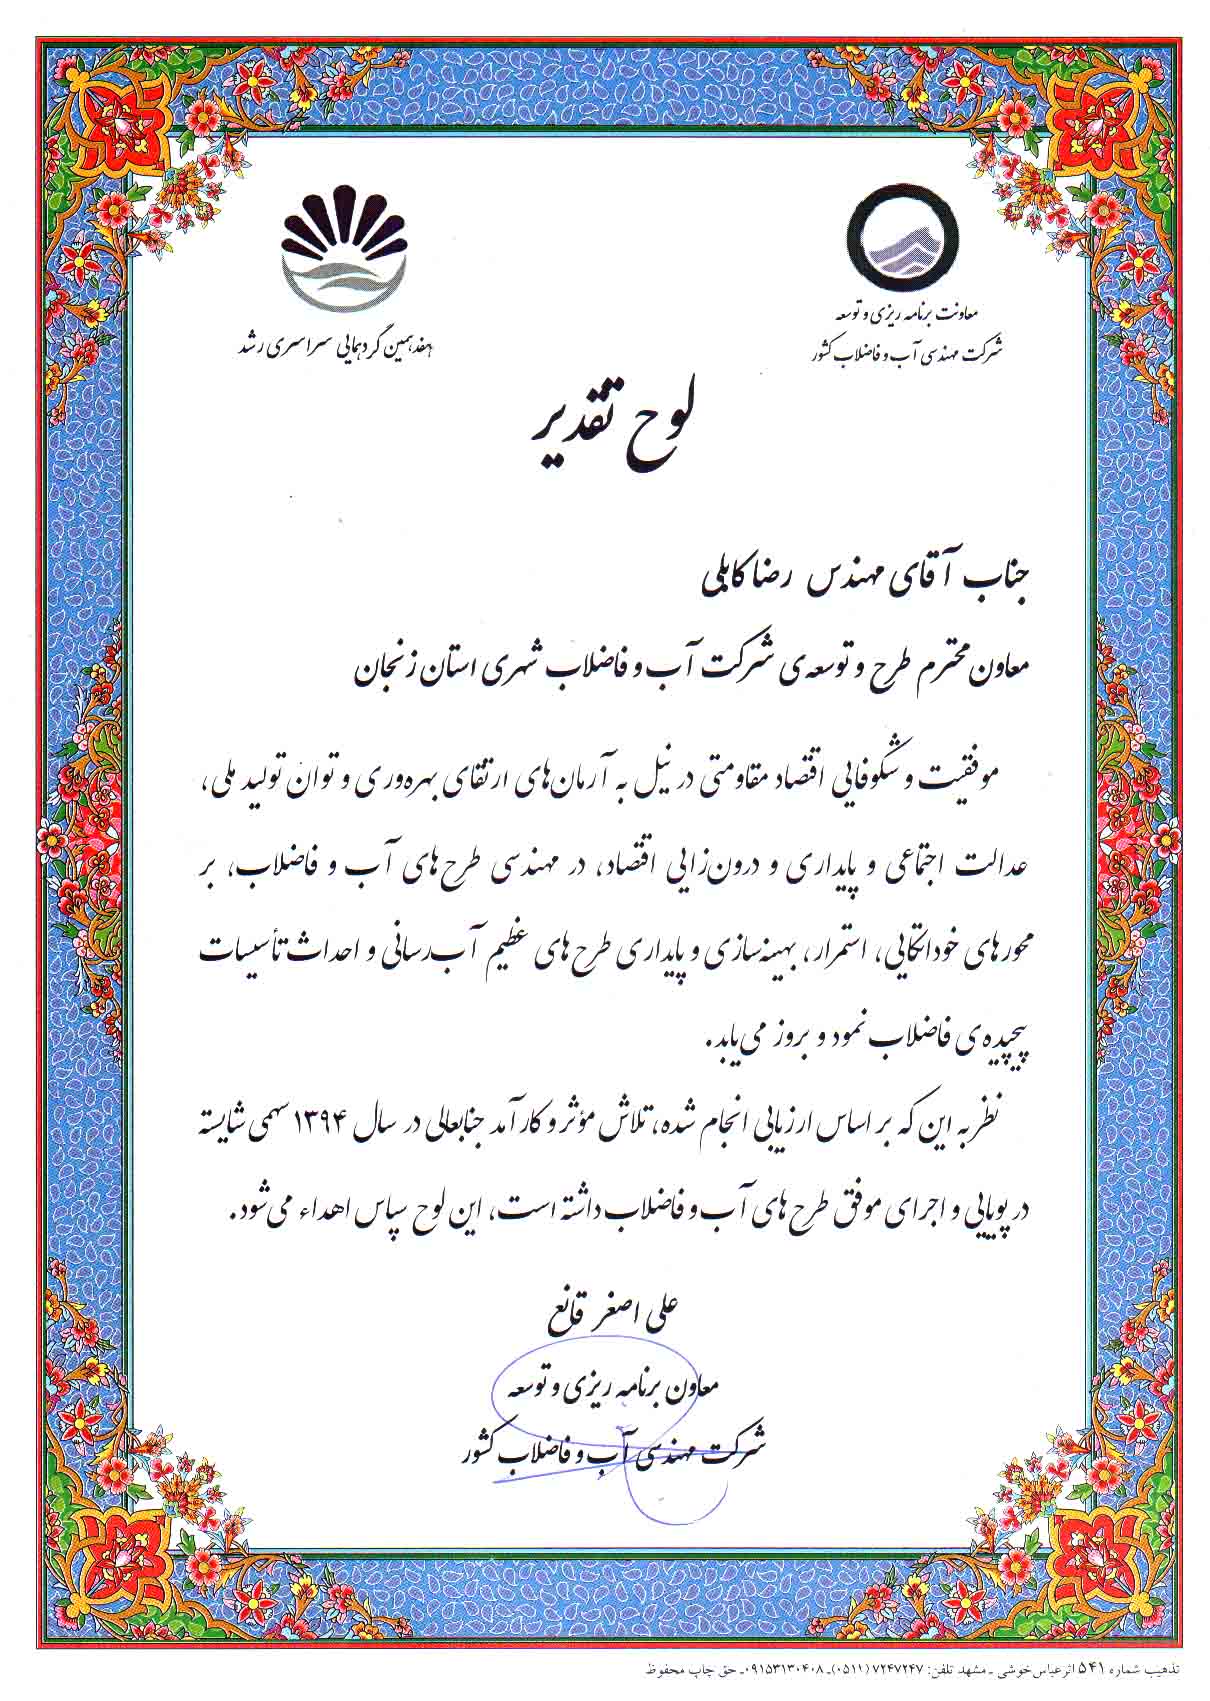 معاونت برنامه ریزی و توسعه
شرکت مهندسی آب و فاضلاب کشور
هفدهمین گردهمایی سراسری رشد
لوح تقدیر
جناب آقای مهندس رضا کابلی
معاون محترم طرح و توسعه‌ی شرکت آب و فاضلاب شهری استان زنجان
موفقیت و شکوفایی اقتصاد مقاومتی در نیل به آرمان‌های ارتقای بهره‌وری و توان تولید ملی،
عدالت اجتماعی و پایداری و درون‌زایی اقتصاد، در مهندسی طرح‌های آب و فاضلاب، بر
محورهای خوداتکایی، استمرار، بهینه‌سازی و پایداری طرح‌های عظیم آب‌رسانی و احداث تأسیسات
پیچیده‌ی فاضلاب نمود و بروز می‌یابد.
نظر به این که بر اساس ارزیابی انجام شده، تلاش مؤثر و کارآمد جنابعالی در سال ۱۳۹۴ سهمی شایسته
در پویایی و اجرای موفق طرح‌های آب و فاضلاب داشته است، این لوح سپاس اهداء می‌شود.
علی اصغر قانع
معاون برنامه ریزی و توسعه
شرکت مهندسی آب و فاضلاب کشور
تذهیب شماره ۵۴۱ اثر عباس خوشی ـ مشهد تلفن: ۷۲۴۷۲۴۷ (۰۵۱۱)ـ ۰۹۱۵۳۱۳۰۴۰۸ـ حق چاپ محفوظ